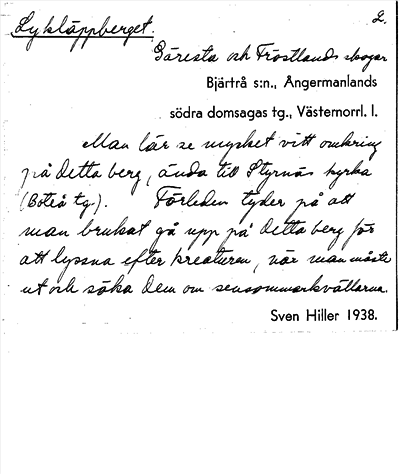 Lykläppberget.
2.
Gäresta och Fröstlands skogar
Bjärtrå s:n., Ångermanlands
södra domsagas tg., Västernorrl. l.
Man lär se mycket vitt omkring
på detta berg, ända till Styrnäs kyrka
(Boteå tg.). Förleden tyder på att
man brukat gå upp på detta berg för
att lyssna efter kreaturen, när man måste
ut och söka dem om sensommarkvällarna.
Sven Hiller 1938.